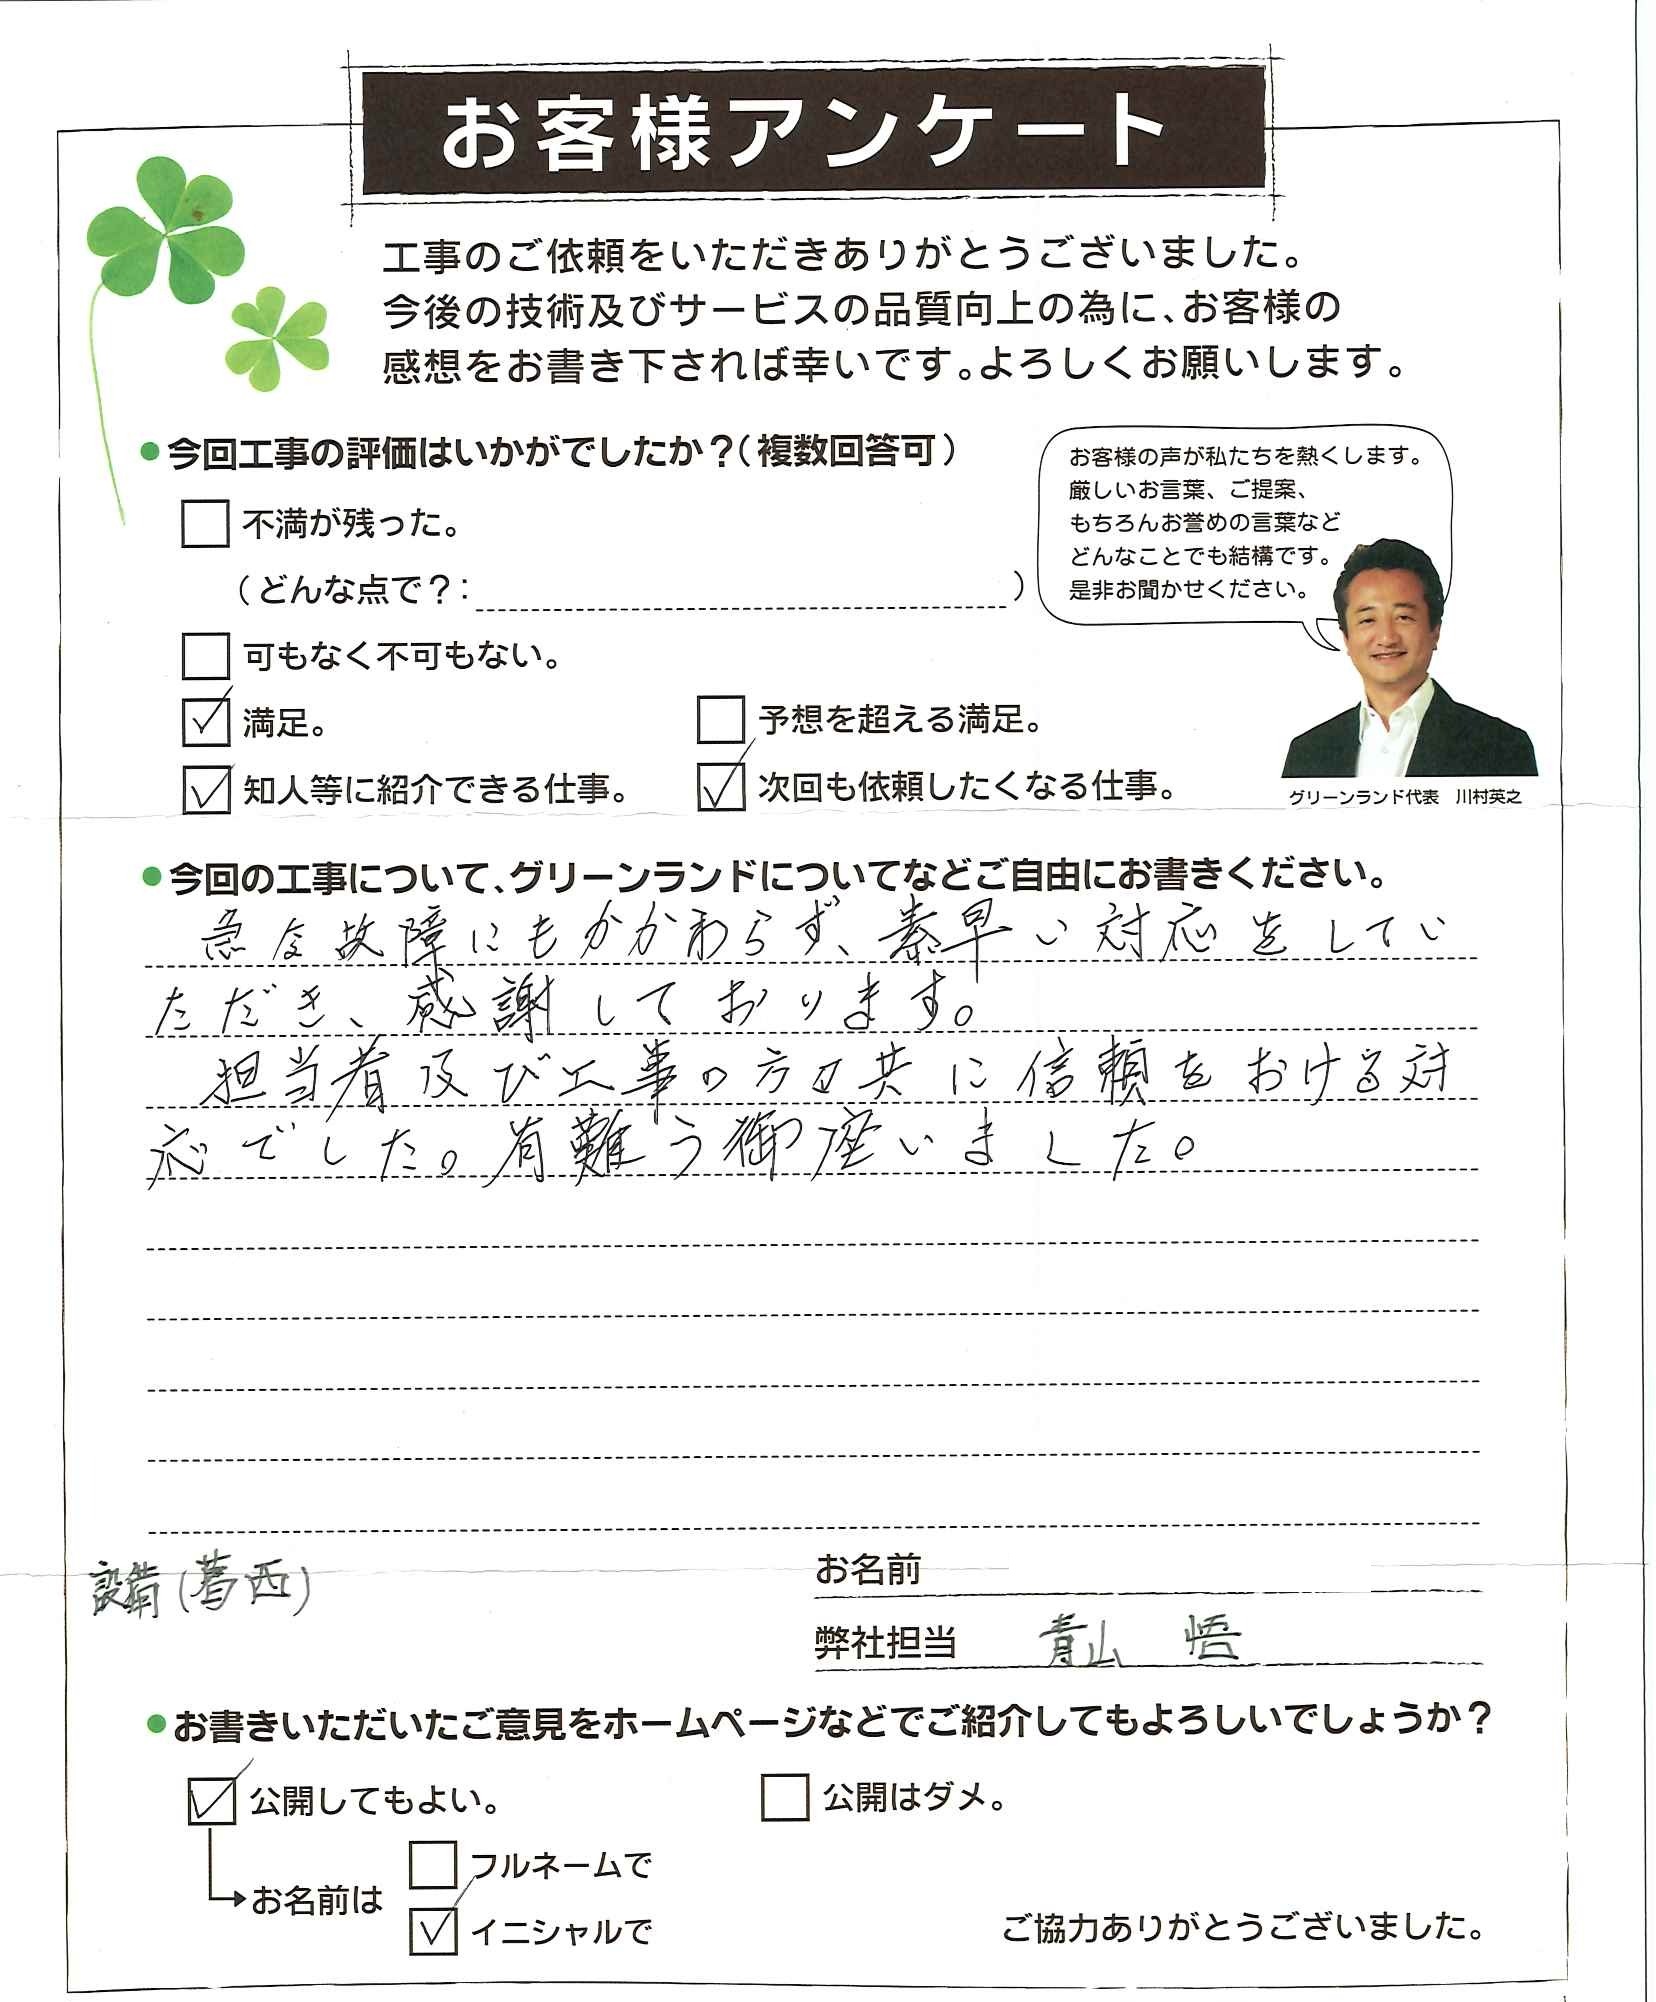 お客様アンケート
工事のご依頼をいただきありがとうございました。
今後の技術及びサービスの品質向上の為に、お客様の
感想をお書き下されば幸いです。よろしくお願いします。
●今回工事の評価はいかがでしたか？（複数回答可）
不満が残った。
（どんな点で？：　　　）
可もなく不可もない。
満足。
予想を超える満足。
知人等に紹介できる仕事。
次回も依頼したくなる仕事。
お客様の声が私たちを熱くします。
厳しいお言葉、ご提案、
もちろんお誉めの言葉など
どんなことでも結構です。
是非お聞かせください。
グリーンランド代表　川村英之
●今回の工事について、グリーンランドについてなどご自由にお書きください。
急な故障にもかかわらず、素早い対応をしてい
ただき、感謝しております。
担当者及び工事の方は共に信頼をおける対
応でした。有難う御座いました。
設備（葛西）
お名前
弊社担当　青山　悟
●お書きいただいたご意見をホームページなどでご紹介してもよろしいでしょうか？
公開してもよい。
公開はダメ。
お名前は
フルネームで
イニシャルで
ご協力ありがとうございました。